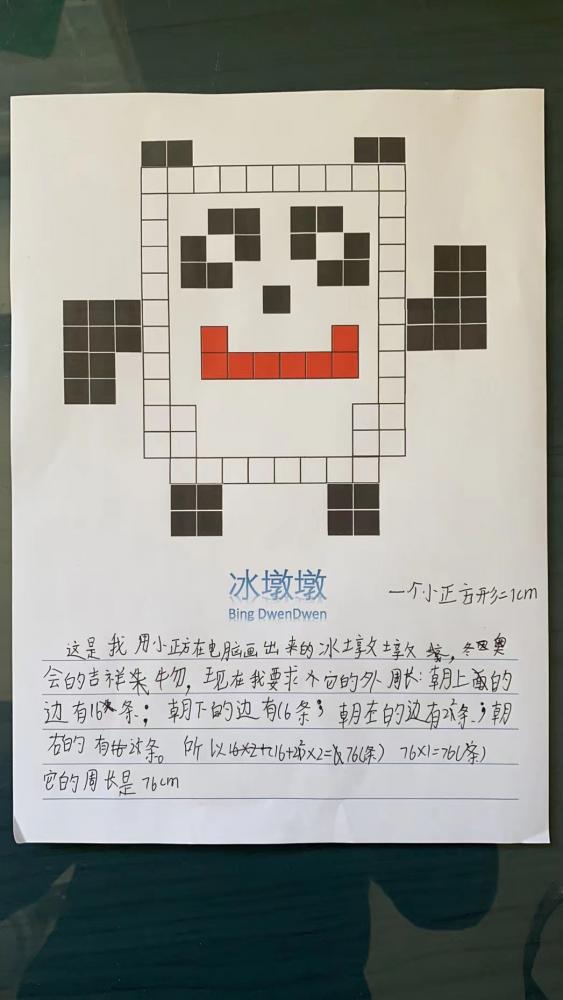 冰墩墩
Bing DwenDwen
一个小正方形=1cm
这是我用小正方在电脑画出来的冰墩墩,冬奥
会的吉祥物,现在我要求它的外周长:朝上面的
边有16条;朝下的边有16条;朝左的边有条;朝
右的有条。所以(16+)×2=76(条) 76×1=76(条)
它的周长是76cm